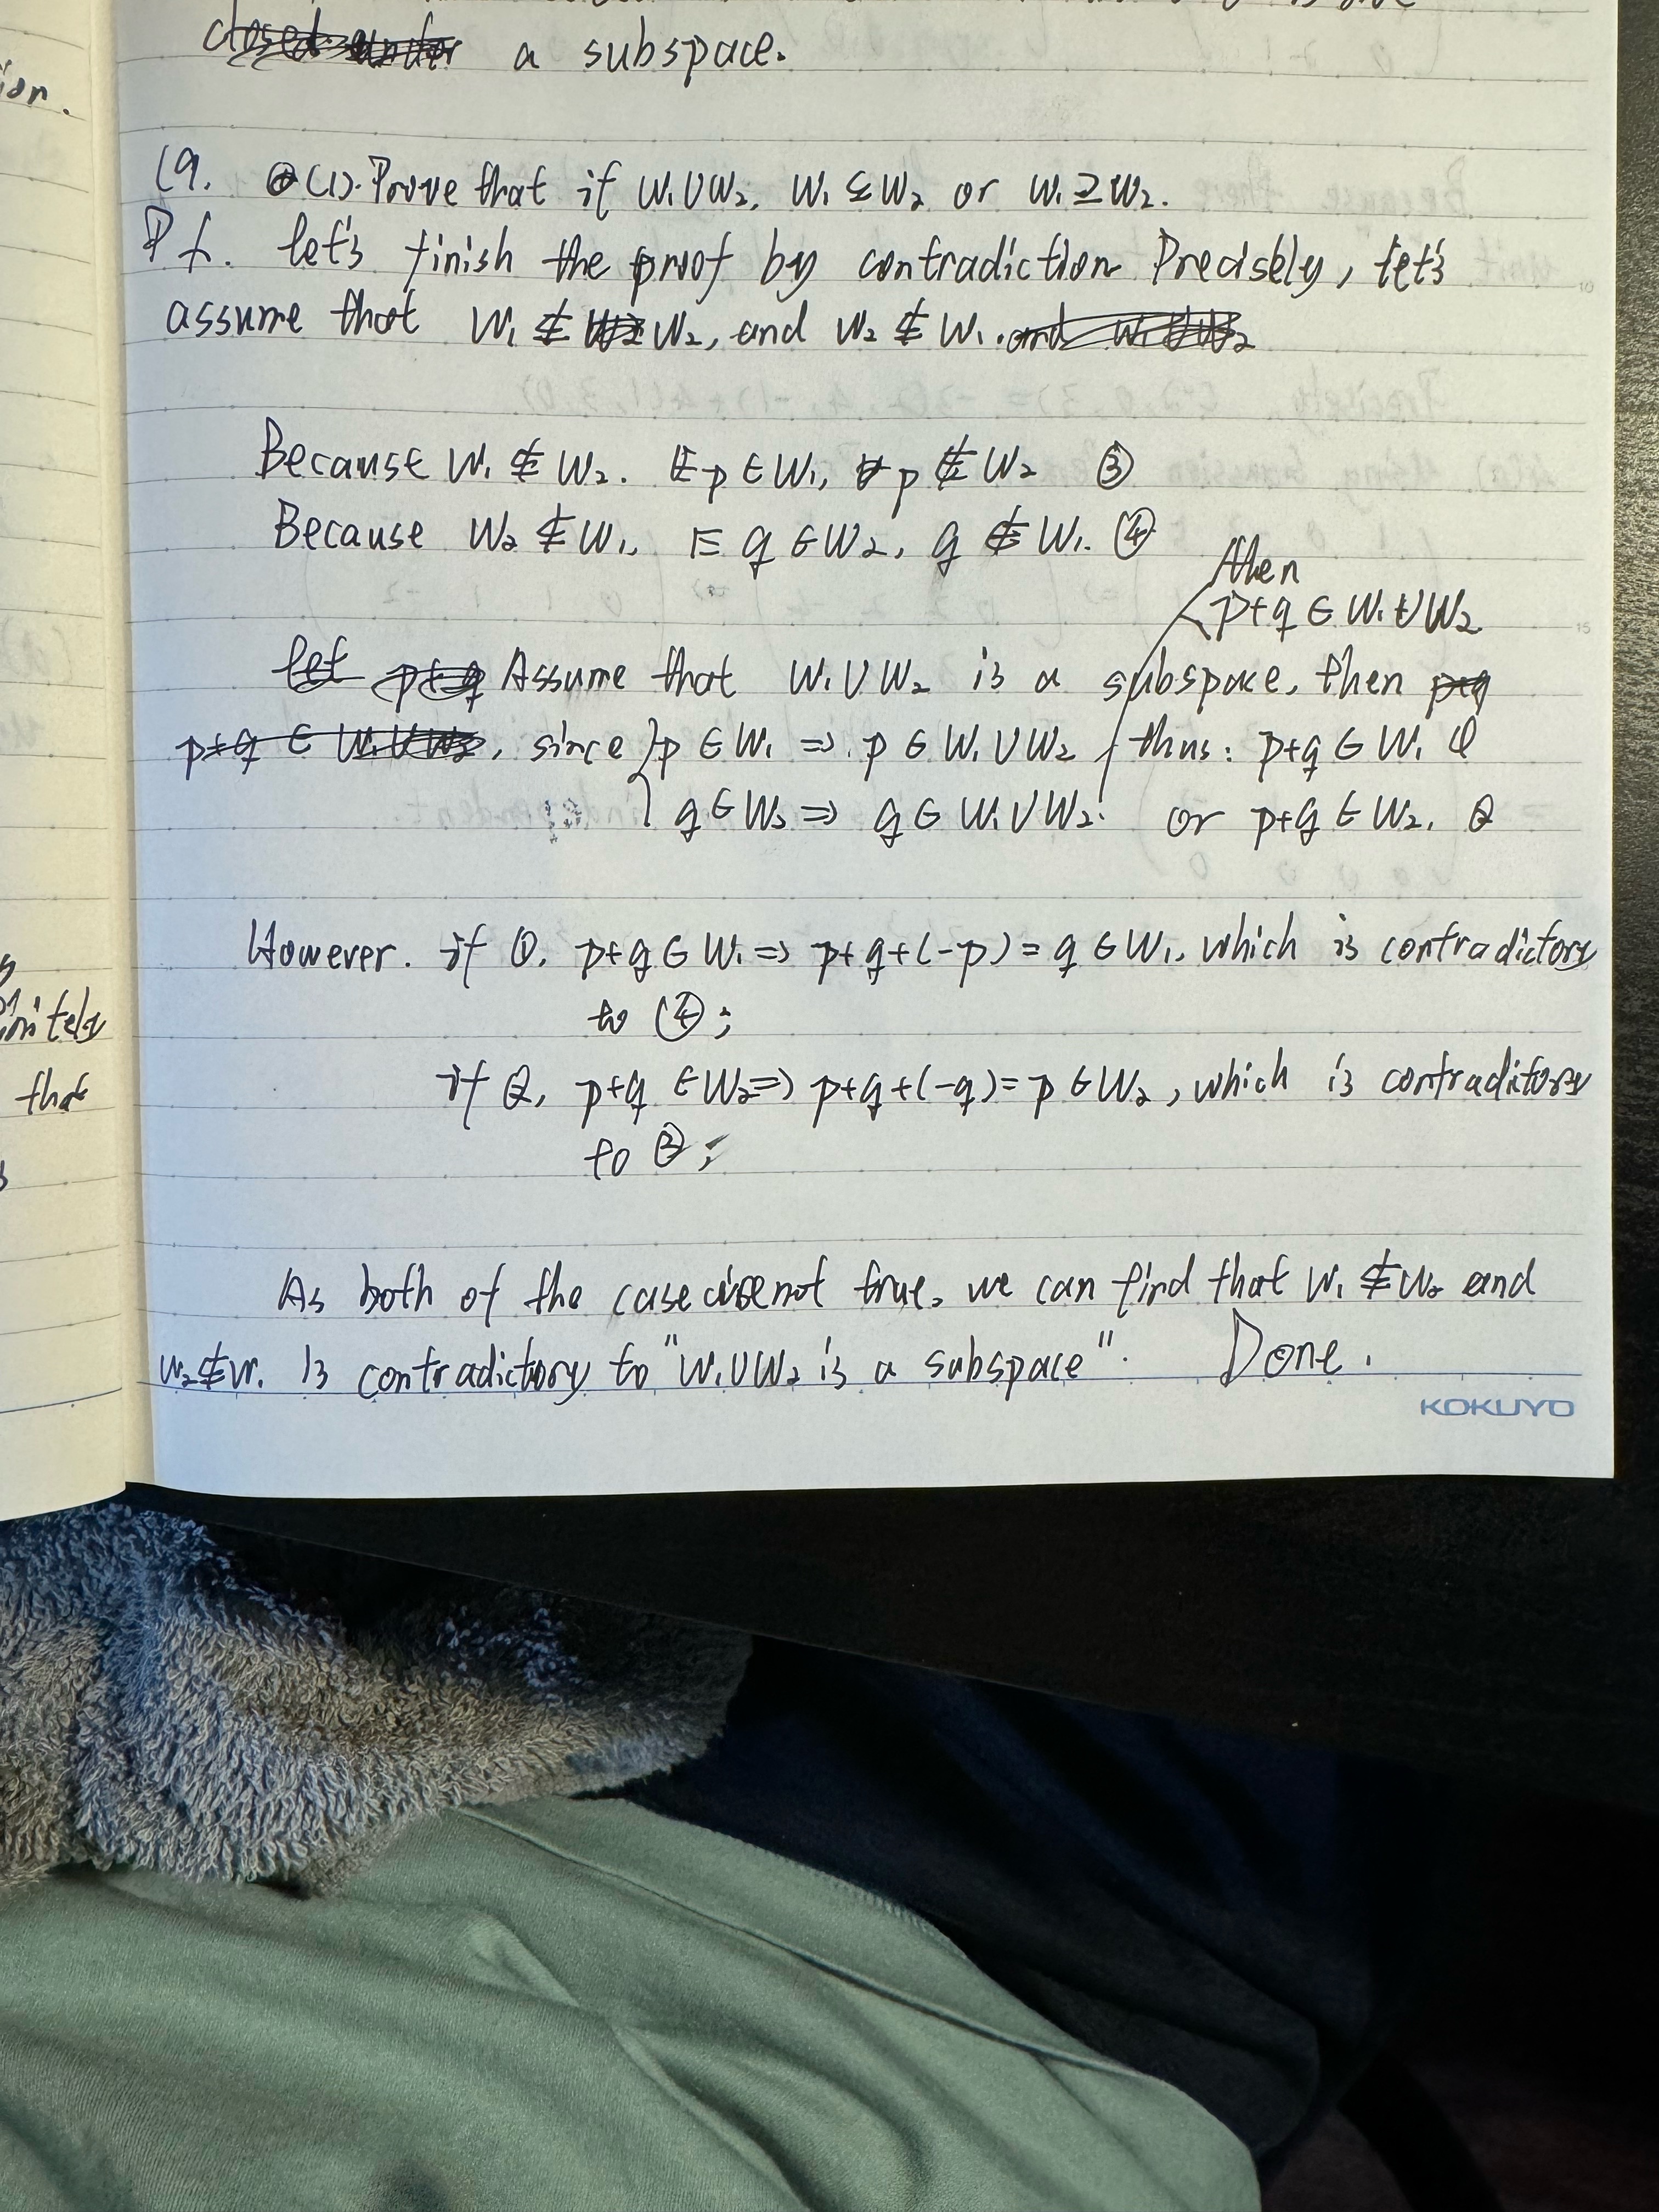 a subspace.
ion.
19. (1). Prove that if W₁∪W₂, W₁ ⊆ W₂ or W₁ ⊇ W₂.
Pf. let's finish the proof by contradiction. Precisely, let's
assume that W₁ ⊈ W₂, and W₂ ⊈ W₁.
Because W₁ ⊈ W₂. ∃ p ∈ W₁, p ∉ W₂ ③
Because W₂ ⊈ W₁, ∃ q ∈ W₂, q ∉ W₁. ④
then
p+q ∈ W₁∪W₂
Assume that W₁∪W₂ is a subspace, then
, since { p ∈ W₁ => p ∈ W₁∪W₂ thus: p+q ∈ W₁ ①
q ∈ W₂ => q ∈ W₁∪W₂. or p+q ∈ W₂, ②
However. if ①, p+q ∈ W₁ => p+q+(-p) = q ∈ W₁, which is contradictory
to ④;
if ②, p+q ∈ W₂ => p+q+(-q) = p ∈ W₂, which is contradictory
to ③;
that
As both of the case are not true, we can find that W₁ ⊈ W₂ and
W₂ ⊈ W₁ is contradictory to "W₁∪W₂ is a subspace". Done.
KOKUYO